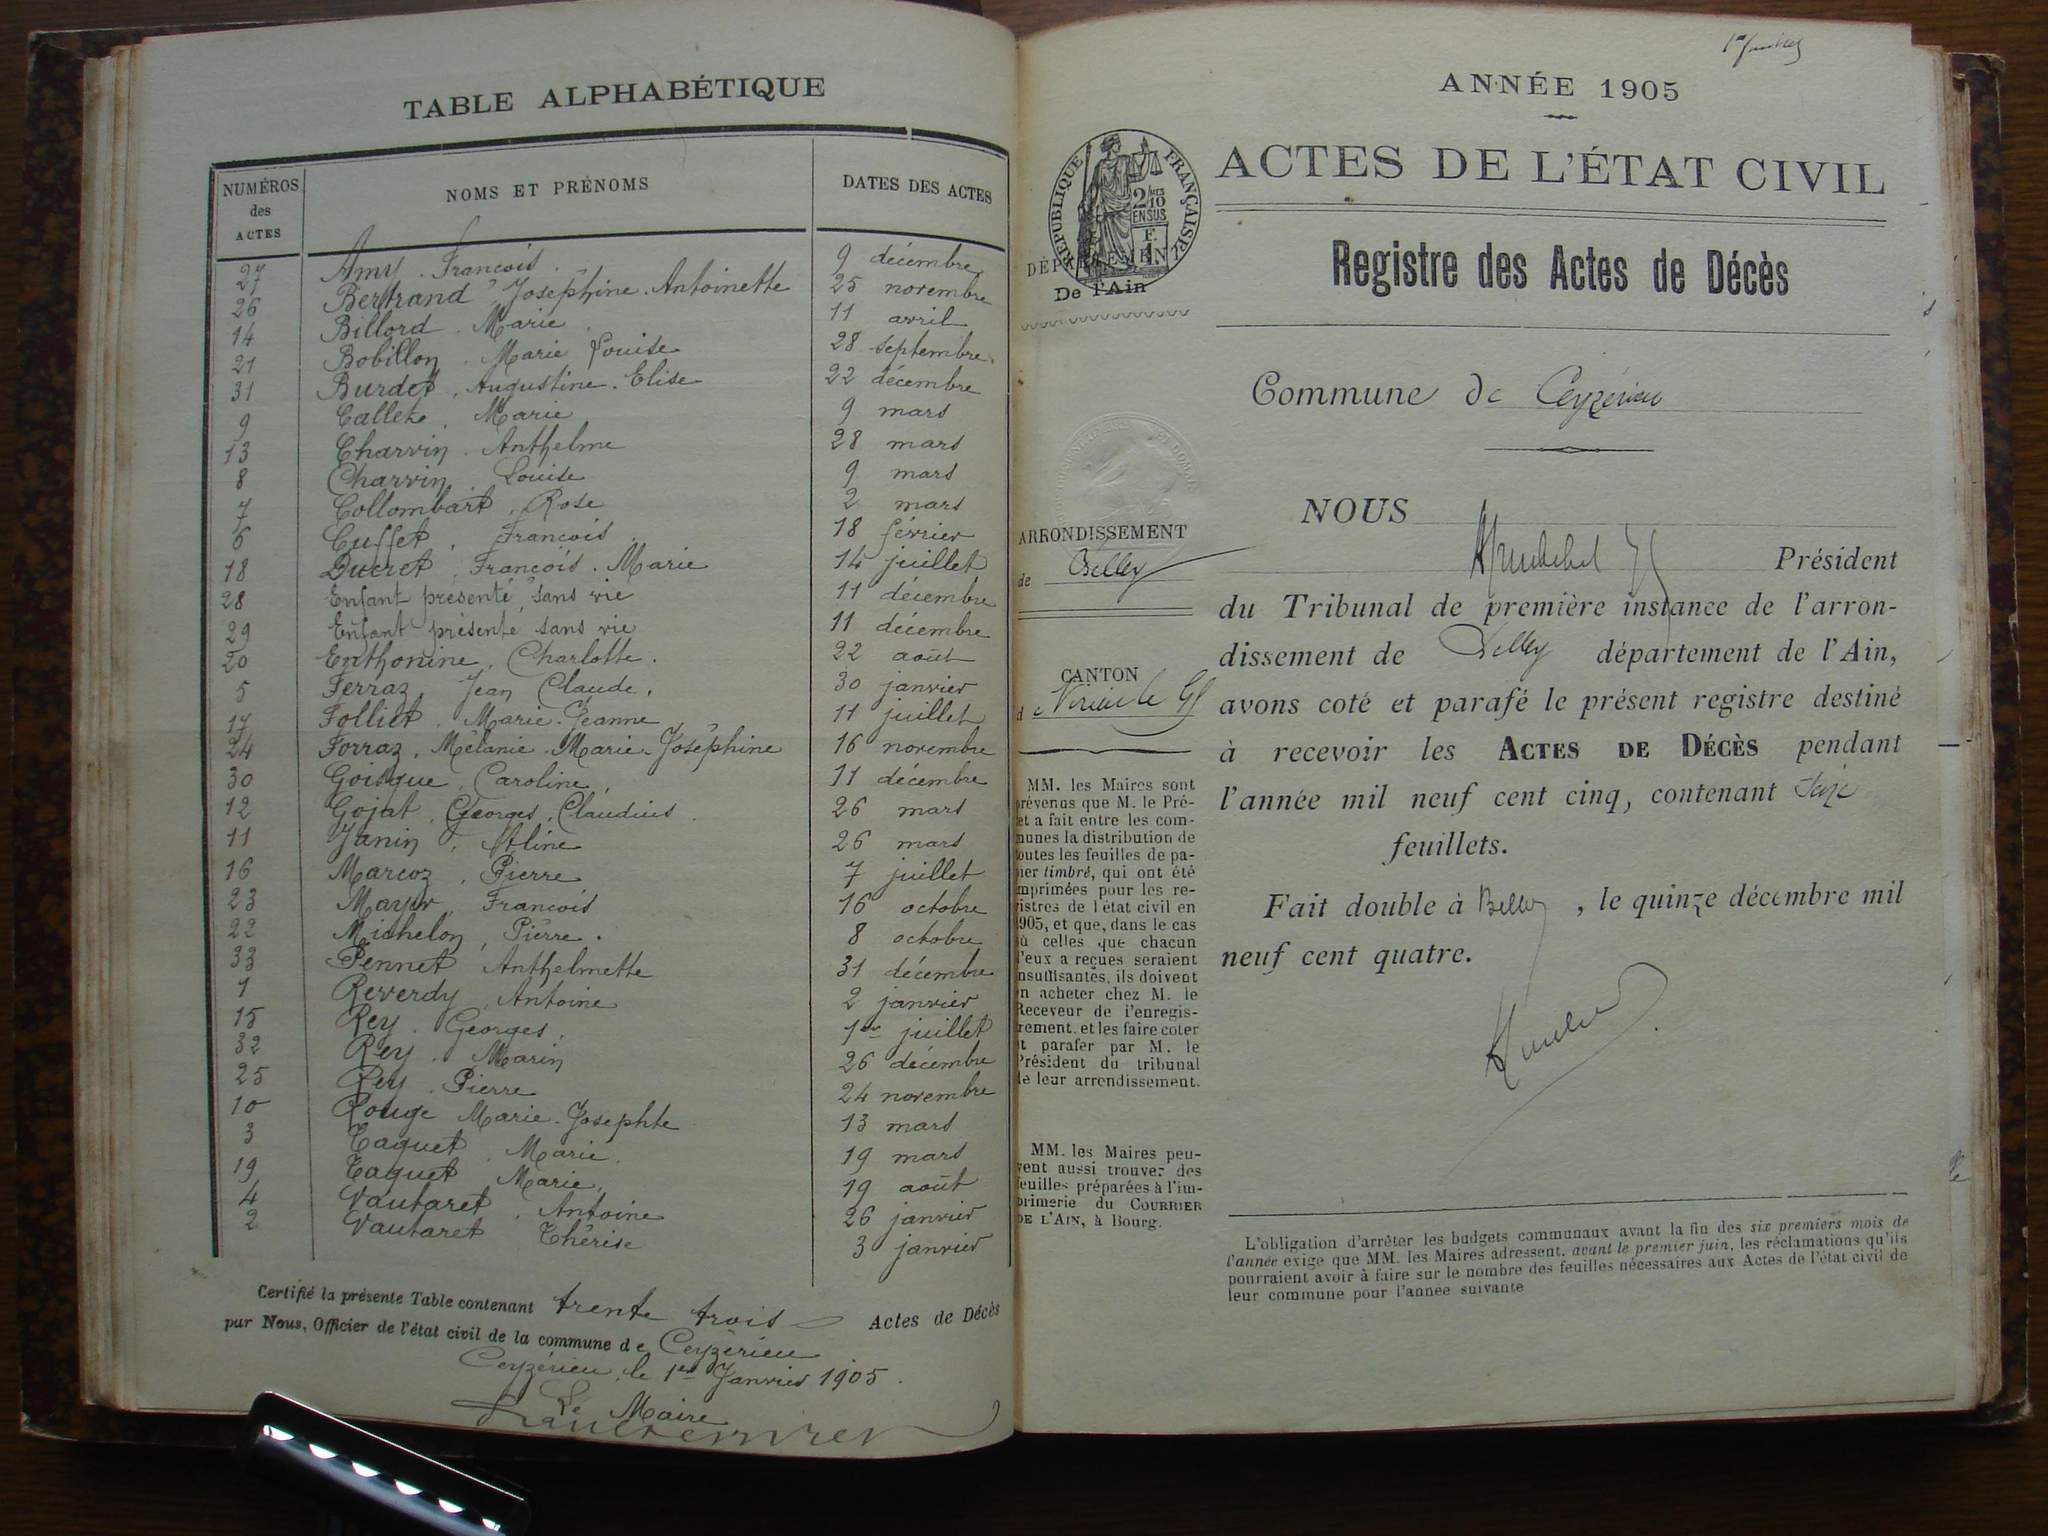 TABLE ALPHABÉTIQUE
NUMÉROS des ACTES NOMS ET PRÉNOMS DATES DES ACTES
27 Amy. François. 9 décembre
26 Bertrand Joséphine. Antoinette 25 novembre
14 Billord. Marie. 11 avril
21 Bobillon. Marie Louise 28 septembre
31 Burdet, Augustine. Elise 22 décembre
9 Callet, Marie 9 mars
13 Charvin. Anthelme 28 mars
8 Charvin Louise 9 mars
7 Collombart, Rose 2 mars
6 Cuffet, François. 18 février
18 Ducret, François. Marie 14 juillet
28 Enfant présenté sans vie 11 décembre
29 Enfant présenté sans vie 11 décembre
20 Enthonine, Charlotte. 22 août
5 Ferraz, Jean Claude. 30 janvier
17 Folliet. Marie-Jeanne 11 juillet
24 Forraz, Mélanie. Marie-Joséphine 16 novembre
30 Goisque, Caroline 11 décembre
12 Gojat, Georges, Claudius 26 mars
11 Janin, Aline 26 mars
16 Marcoz, Pierre 7 juillet
23 François 16 octobre
22 Michelon, Pierre. 8 octobre
33 Pennet, Anthelmette 31 décembre
1 Reverdy, Antoine 2 janvier
15 Rey. Georges. 1er juillet
32 Rey. Marin 26 décembre
25 Rey. Pierre 24 novembre
10 Rouge Marie-Josephte 13 mars
3 Taquet Marie. 19 mars
19 Taquet Marie. 19 août
4 Vautaret, Antoine 26 janvier
2 Vautaret Thérise 3 janvier
Certifié la présente Table contenant trente trois Actes de Décès
par Nous, Officier de l'état civil de la commune de Ceyzérieu
Ceyzérieu, le 1er Janvier 1905.
Le Maire
ANNÉE 1905
ACTES DE L'ÉTAT CIVIL
RÉPUBLIQUE FRANÇAISE
2/10
EN SUS
1 F.
DÉPARTEMENT
De l'Ain
Registre des Actes de Décès
Commune de Ceyzérieu
ARRONDISSEMENT
de Belley
CANTON
MM. les Maires sont
prévenus que M. le Pré-
et a fait entre les com-
munes la distribution de
toutes les feuilles de pa-
pier timbré, qui ont été
imprimées pour les re-
istres de l'état civil en
1905, et que, dans le cas
où celles que chacun
d'eux a reçues seraient
insuffisantes, ils doivent
en acheter chez M. le
Receveur de l'enregis-
rement. et les faire coter
et parafer par M. le
Président du tribunal
de leur arrondissement.
MM. les Maires peu-
vent aussi trouver des
feuilles préparées à l'im-
primerie du COURRIER
DE L'AIN, à Bourg.
NOUS
Président
du Tribunal de première instance de l'arron-
dissement de Belley département de l'Ain,
avons coté et parafé le présent registre destiné
à recevoir les ACTES DE DÉCÈS pendant
l'année mil neuf cent cinq, contenant seize
feuillets.
Fait double à Belley, le quinze décembre mil
neuf cent quatre.
L'obligation d'arrêter les budgets communaux avant la fin des six premiers mois de
l'année exige que MM. les Maires adressent, avant le premier juin, les réclamations qu'ils
pourraient avoir à faire sur le nombre des feuilles nécessaires aux Actes de l'état civil de
leur commune pour l'année suivante